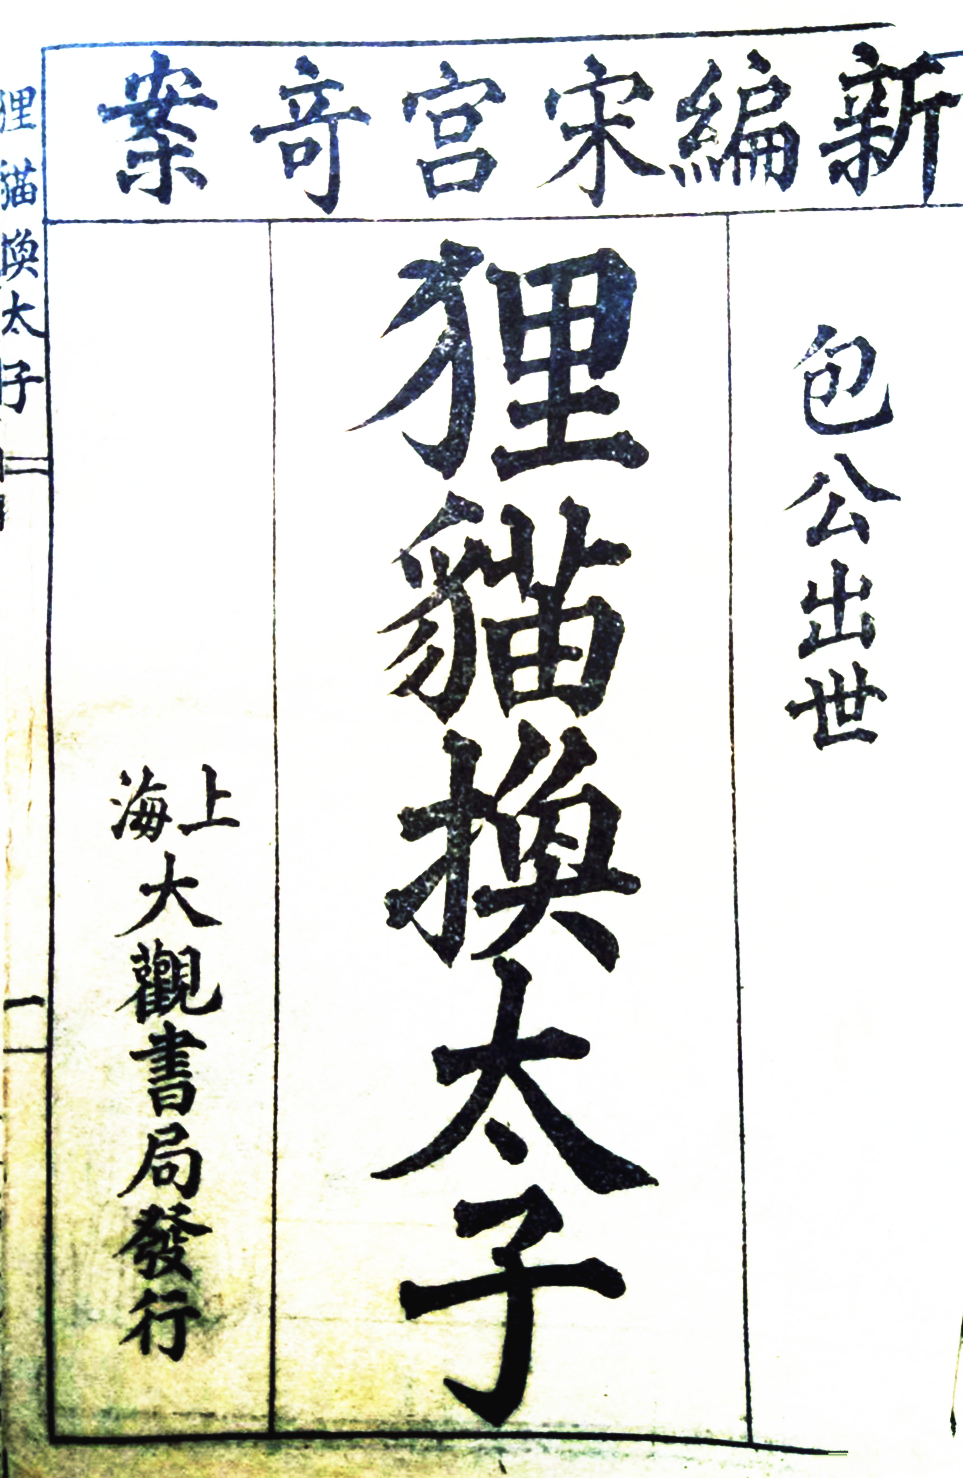 新編宋宮奇案
包公出世
狸貓換太子
上海
大觀書局發行
狸貓換太子
一